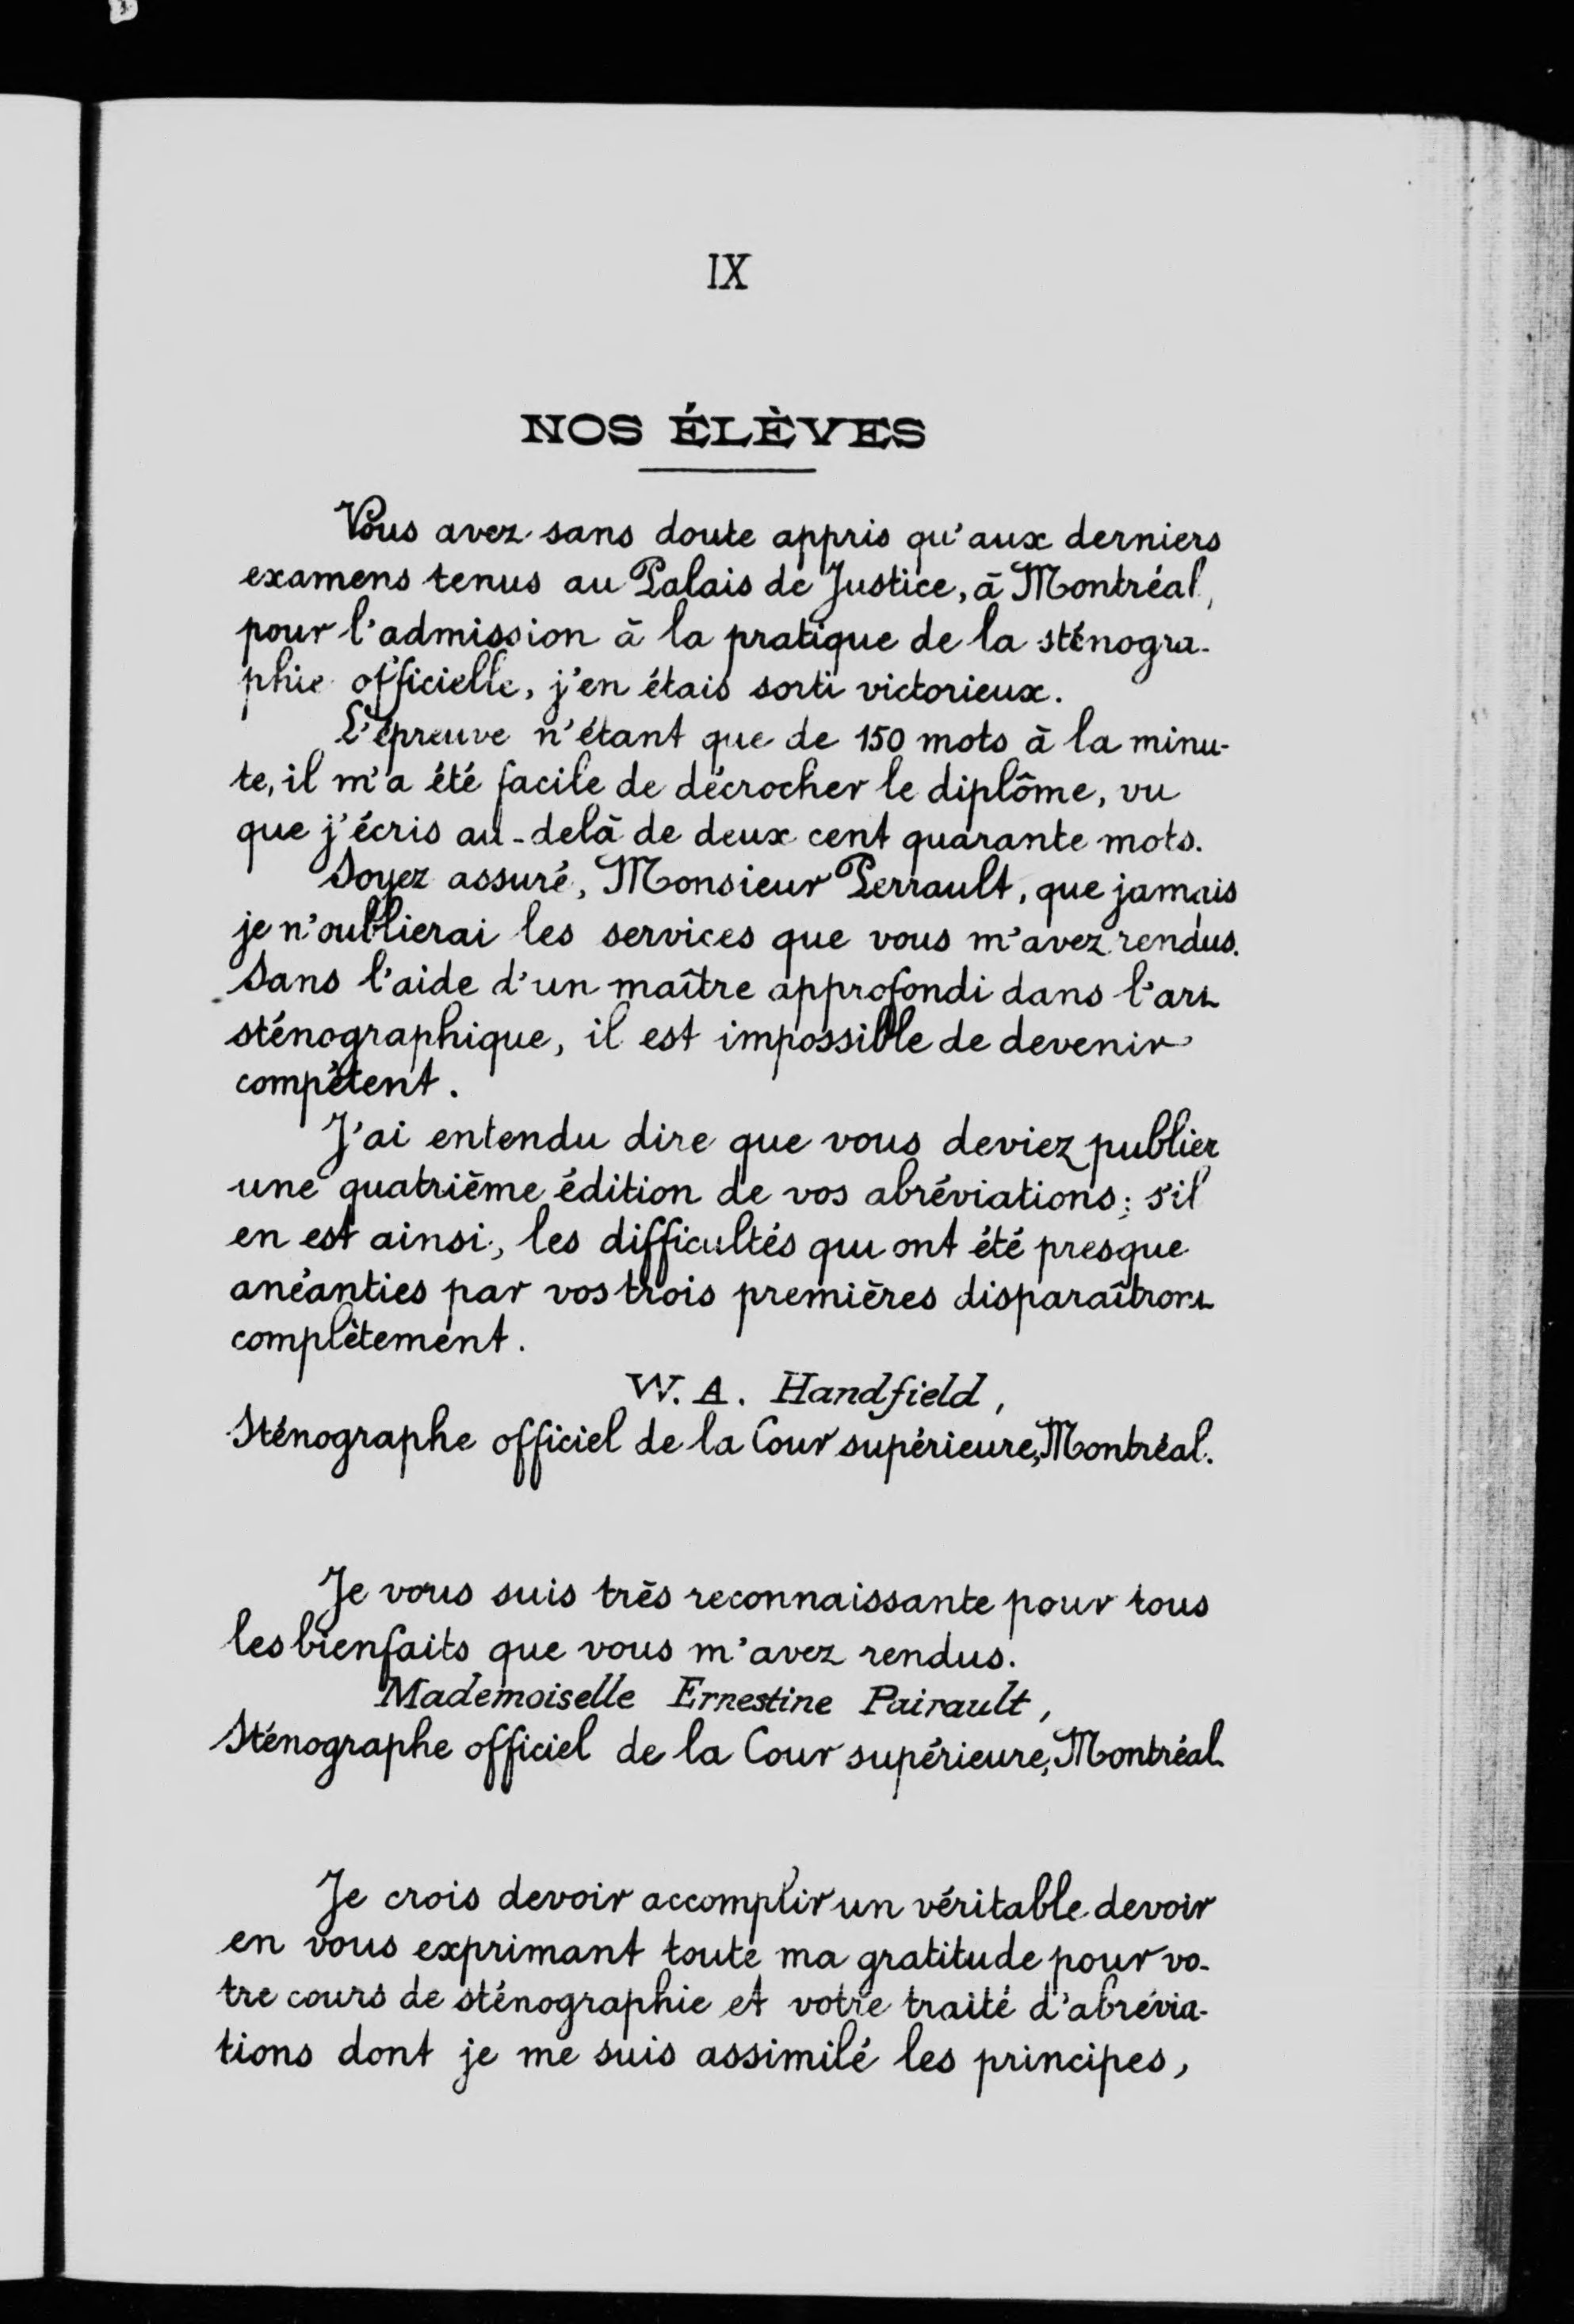 IX
NOS ÉLÈVES
Vous avez sans doute appris qu'aux derniers
examens tenus au Palais de Justice, à Montréal,
pour l'admission à la pratique de la sténogra-
phie officielle, j'en étais sorti victorieux.
L'épreuve n'étant que de 150 mots à la minu-
te, il m'a été facile de décrocher le diplôme, vu
que j'écris au-delà de deux cent quarante mots.
Soyez assuré, Monsieur Perrault, que jamais
je n'oublierai les services que vous m'avez rendus.
Sans l'aide d'un maître approfondi dans l'art
sténographique, il est impossible de devenir
compétent.
J'ai entendu dire que vous deviez publier
une quatrième édition de vos abréviations; s'il
en est ainsi, les difficultés qui ont été presque
anéanties par vos trois premières disparaîtront
complètement.
W. A. Handfield,
Sténographe officiel de la Cour supérieure, Montréal.
Je vous suis très reconnaissante pour tous
les bienfaits que vous m'avez rendus.
Mademoiselle Ernestine Pairault,
Sténographe officiel de la Cour supérieure, Montréal
Je crois devoir accomplir un véritable devoir
en vous exprimant toute ma gratitude pour vo-
tre cours de sténographie et votre traité d'abrévia-
tions dont je me suis assimilé les principes,